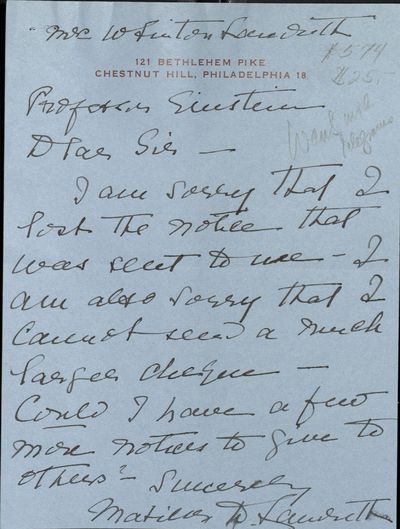 Mrs W Linton Landreth
121 BETHLEHEM PIKE
CHESTNUT HILL, PHILADELPHIA 18
$574
$25-
Professor Einstein
Want more
telegrams
Dear Sir —
I am sorry that I
lost the notice that
was sent to me - I
am also sorry that I
cannot send a much
larger cheque —
Could I have a few
more notices to give to
others? - Sincerely
Landreth